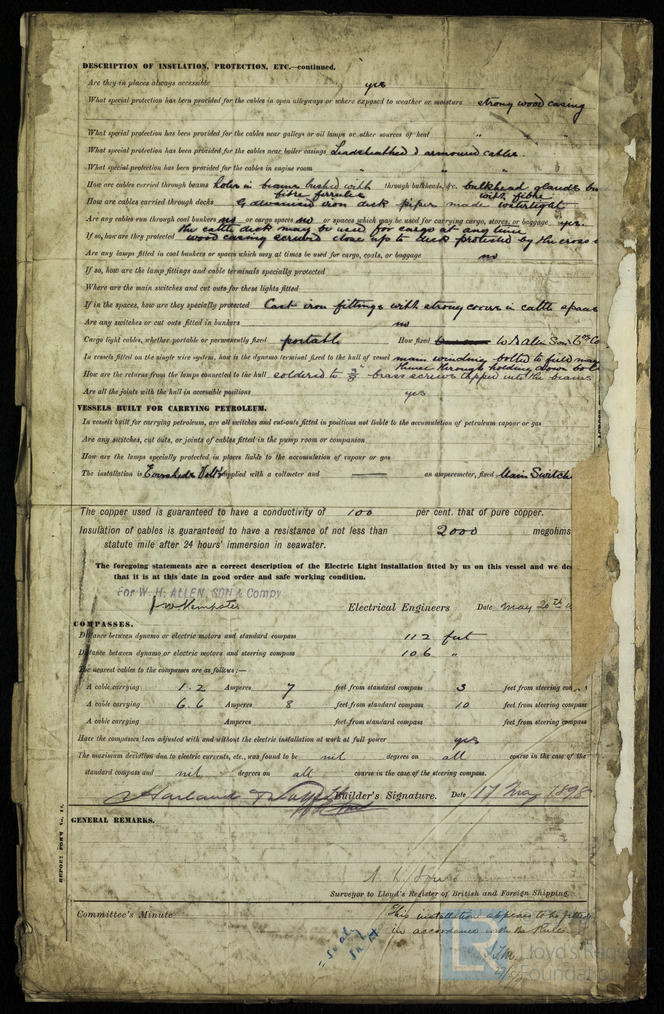 DESCRIPTION OF INSULATION, PROTECTION, ETC.—continued.
Are they in places always accessible yes
What special protection has been provided for the cables in open alleyways or where exposed to weather or moisture strong wood casing
What special protection has been provided for the cables near galleys or oil lamps or other sources of heat " "
What special protection has been provided for the cables near boiler casings Leadsheathed & armoured cables.
What special protection has been provided for the cables in engine room " "
How are cables carried through beams Holes in beams bushed with fibre ferrules through bulkheads, &c. bulkhead glands with fibre
How are cables carried through decks Galvanised iron deck pipes made watertight
Are any cables run through coal bunkers no or cargo spaces no or spaces which may be used for carrying cargo, stores, or baggage yes.
the cattle deck may be used for cargo at any time
If so, how are they protected wood casing screwed close up to deck protected by the cross
Are any lamps fitted in coal bunkers or spaces which may at times be used for cargo, coals, or baggage no
If so, how are the lamp fittings and cable terminals specially protected
Where are the main switches and cut outs for these lights fitted
If in the spaces, how are they specially protected Cast iron fittings with strong covers in cattle spaces
Are any switches or cut outs fitted in bunkers no
Cargo light cables, whether portable or permanently fixed portable How fixed
In vessels fitted on the single wire system, how is the dynamo terminal fixed to the hull of vessel main winding bolted to field mag
thence through holding down bol
How are the returns from the lamps connected to the hull soldered to 3/8" brass screws tapped into the beams
Are all the joints with the hull in accessible positions yes
VESSELS BUILT FOR CARRYING PETROLEUM.
In vessels built for carrying petroleum, are all switches and cut-outs fitted in positions not liable to the accumulation of petroleum vapour or gas
Are any switches, cut outs, or joints of cables fitted in the pump room or companion
How are the lamps specially protected in places liable to the accumulation of vapour or gas
The installation is supplied with a voltmeter and an amperemeter, fixed Main Switch
The copper used is guaranteed to have a conductivity of 100 per cent. that of pure copper.
Insulation of cables is guaranteed to have a resistance of not less than 2000 megohms
statute mile after 24 hours' immersion in seawater.
The foregoing statements are a correct description of the Electric Light installation fitted by us on this vessel and we dec
that it is at this date in good order and safe working condition.
FOR W. H. ALLEN, SON & COMPY
J W Kempster Electrical Engineers Date May 20th
COMPASSES.
Distance between dynamo or electric motors and standard compass 112 feet
Distance between dynamo or electric motors and steering compass 106 "
The nearest cables to the compasses are as follows:—
A cable carrying 1.2 Amperes 7 feet from standard compass 3 feet from steering
A cable carrying 6.6 Amperes 8 feet from standard compass 10 feet from steering compass
A cable carrying Amperes feet from standard compass feet from steering compass
Have the compasses been adjusted with and without the electric installation at work at full power yes
The maximum deviation due to electric currents, etc., was found to be nil degrees on all course in the case of the
standard compass and nil degrees on all course in the case of the steering compass.
Harland & Wolff Builder's Signature. Date 17 May 1898
GENERAL REMARKS.
Surveyor to Lloyd's Register of British and Foreign Shipping.
Committee's Minute
This installation appears to be fitted
in accordance with the Rules
REPORT FORM No. 14.
LR
Lloyd's Register
Foundation